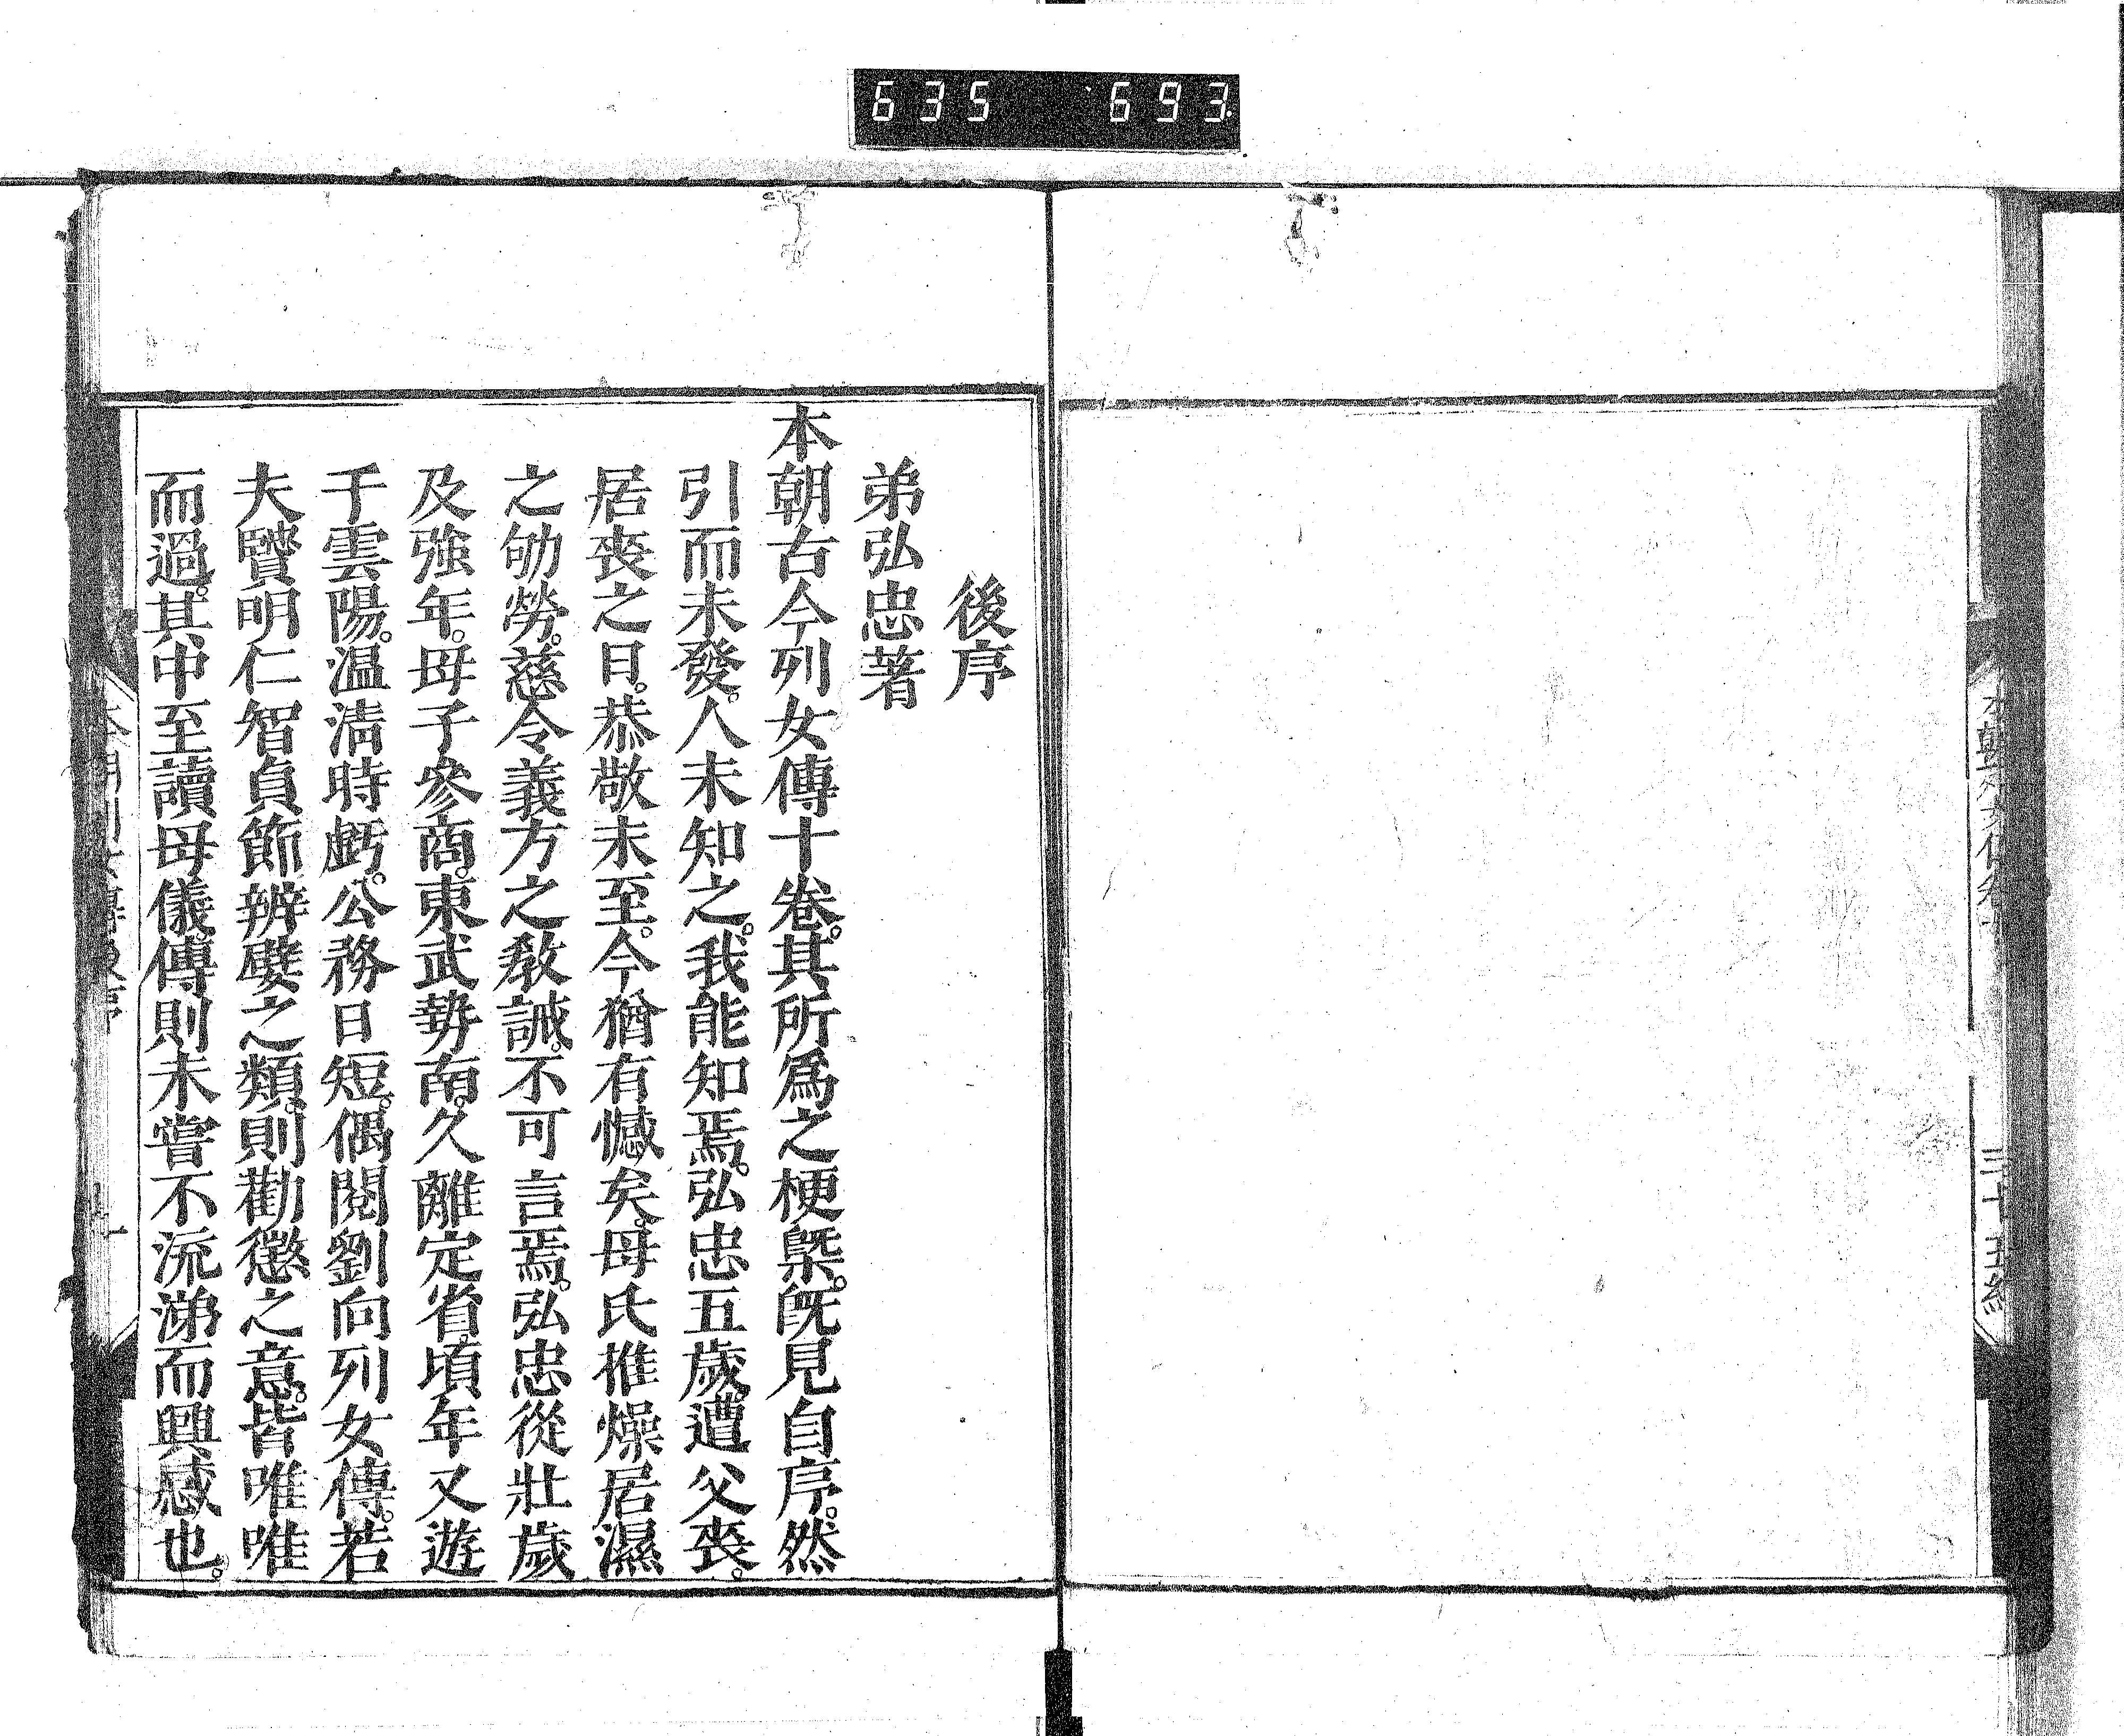 635 693
後序
弟弘忠著
本朝古今列女傳十卷。其所爲之梗槩。旣見自序。然
引而未發。人未知之。我能知焉。弘忠五歲遭父喪。
居喪之日。恭敬未至。今猶有憾矣。母氏推燥居濕
之劬勞。慈令義方之敎誡。不可言焉。弘忠從壯歲
及強年。母子參商。東武勢南。久離定省。頃年又遊
于雲陽。温凊時虧。公務日短。偶閱劉向列女傳。若
夫賢明仁智貞節辨嬖之類。則勸懲之意。皆唯唯
而過。其中至讀母儀傳則未嘗不流涕而興感也。